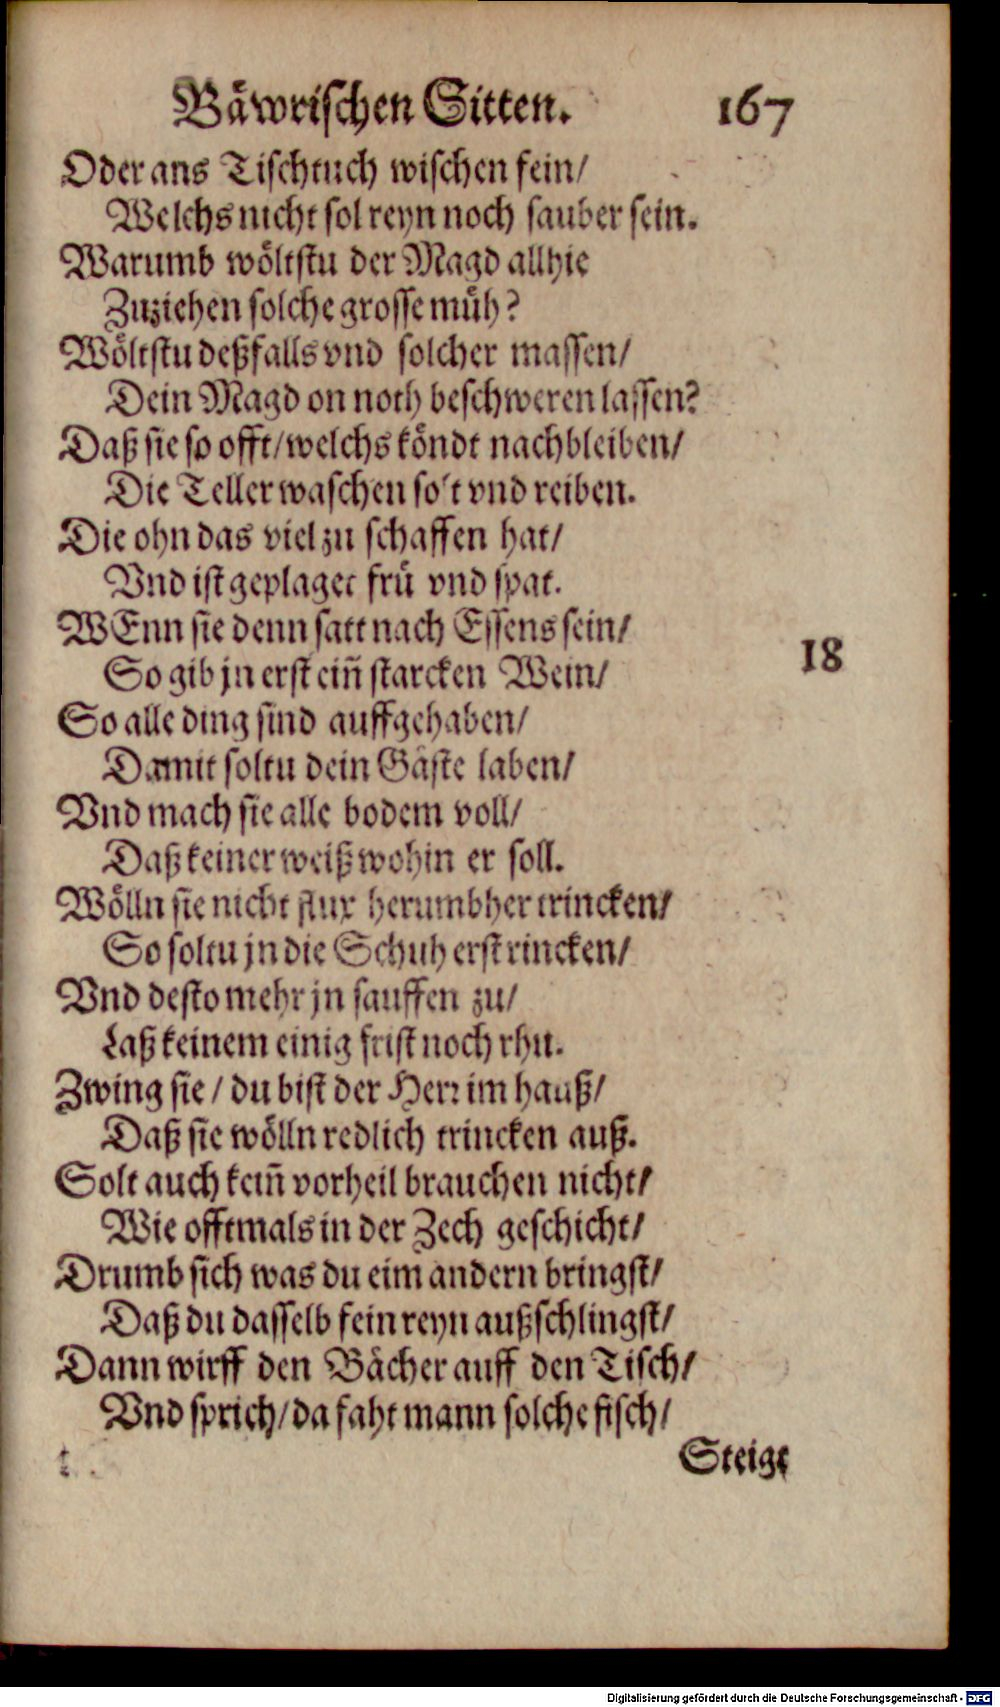 Bäwrischen Sitten. 167
Oder ans Tischtuch wischen fein/
Welchs nicht sol reyn noch sauber sein.
Warumb wöltstu der Magd allhie
Zuziehen solche grosse müh?
Wöltstu deßfalls vnd solcher massen/
Dein Magd on noth beschweren lassen?
Daß sie so offt/welchs köndt nachbleiben/
Die Teller waschen solt vnd reiben.
Die ohn das viel zu schaffen hat/
Vnd ist geplaget frü vnd spat.
WEnn sie denn satt nach Essens sein/
18
So gib jn erst eiñ starcken Wein/
So alle ding sind auffgehaben/
Damit soltu dein Gäste laben/
Vnd mach sie alle bodem voll/
Daß keiner weiß wohin er soll.
Wölln sie nicht flux herumbher trincken/
So soltu jn die Schuh erst rincken/
Vnd desto mehr jn sauffen zu/
Laß keinem einig frist noch rhu.
Zwing sie / du bist der Herr im hauß/
Daß sie wölln redlich trincken auß.
Solt auch keiñ vortheil brauchen nicht/
Wie offtmals in der Zech geschicht/
Drumb sich was du eim andern bringst/
Daß du dasselb fein reyn außschlingst/
Dann wirff den Bächer auff den Tisch/
Vnd sprich/da faht mann solche fisch/
Steige
Digitalisierung gefördert durch die Deutsche Forschungsgemeinschaft - DFG